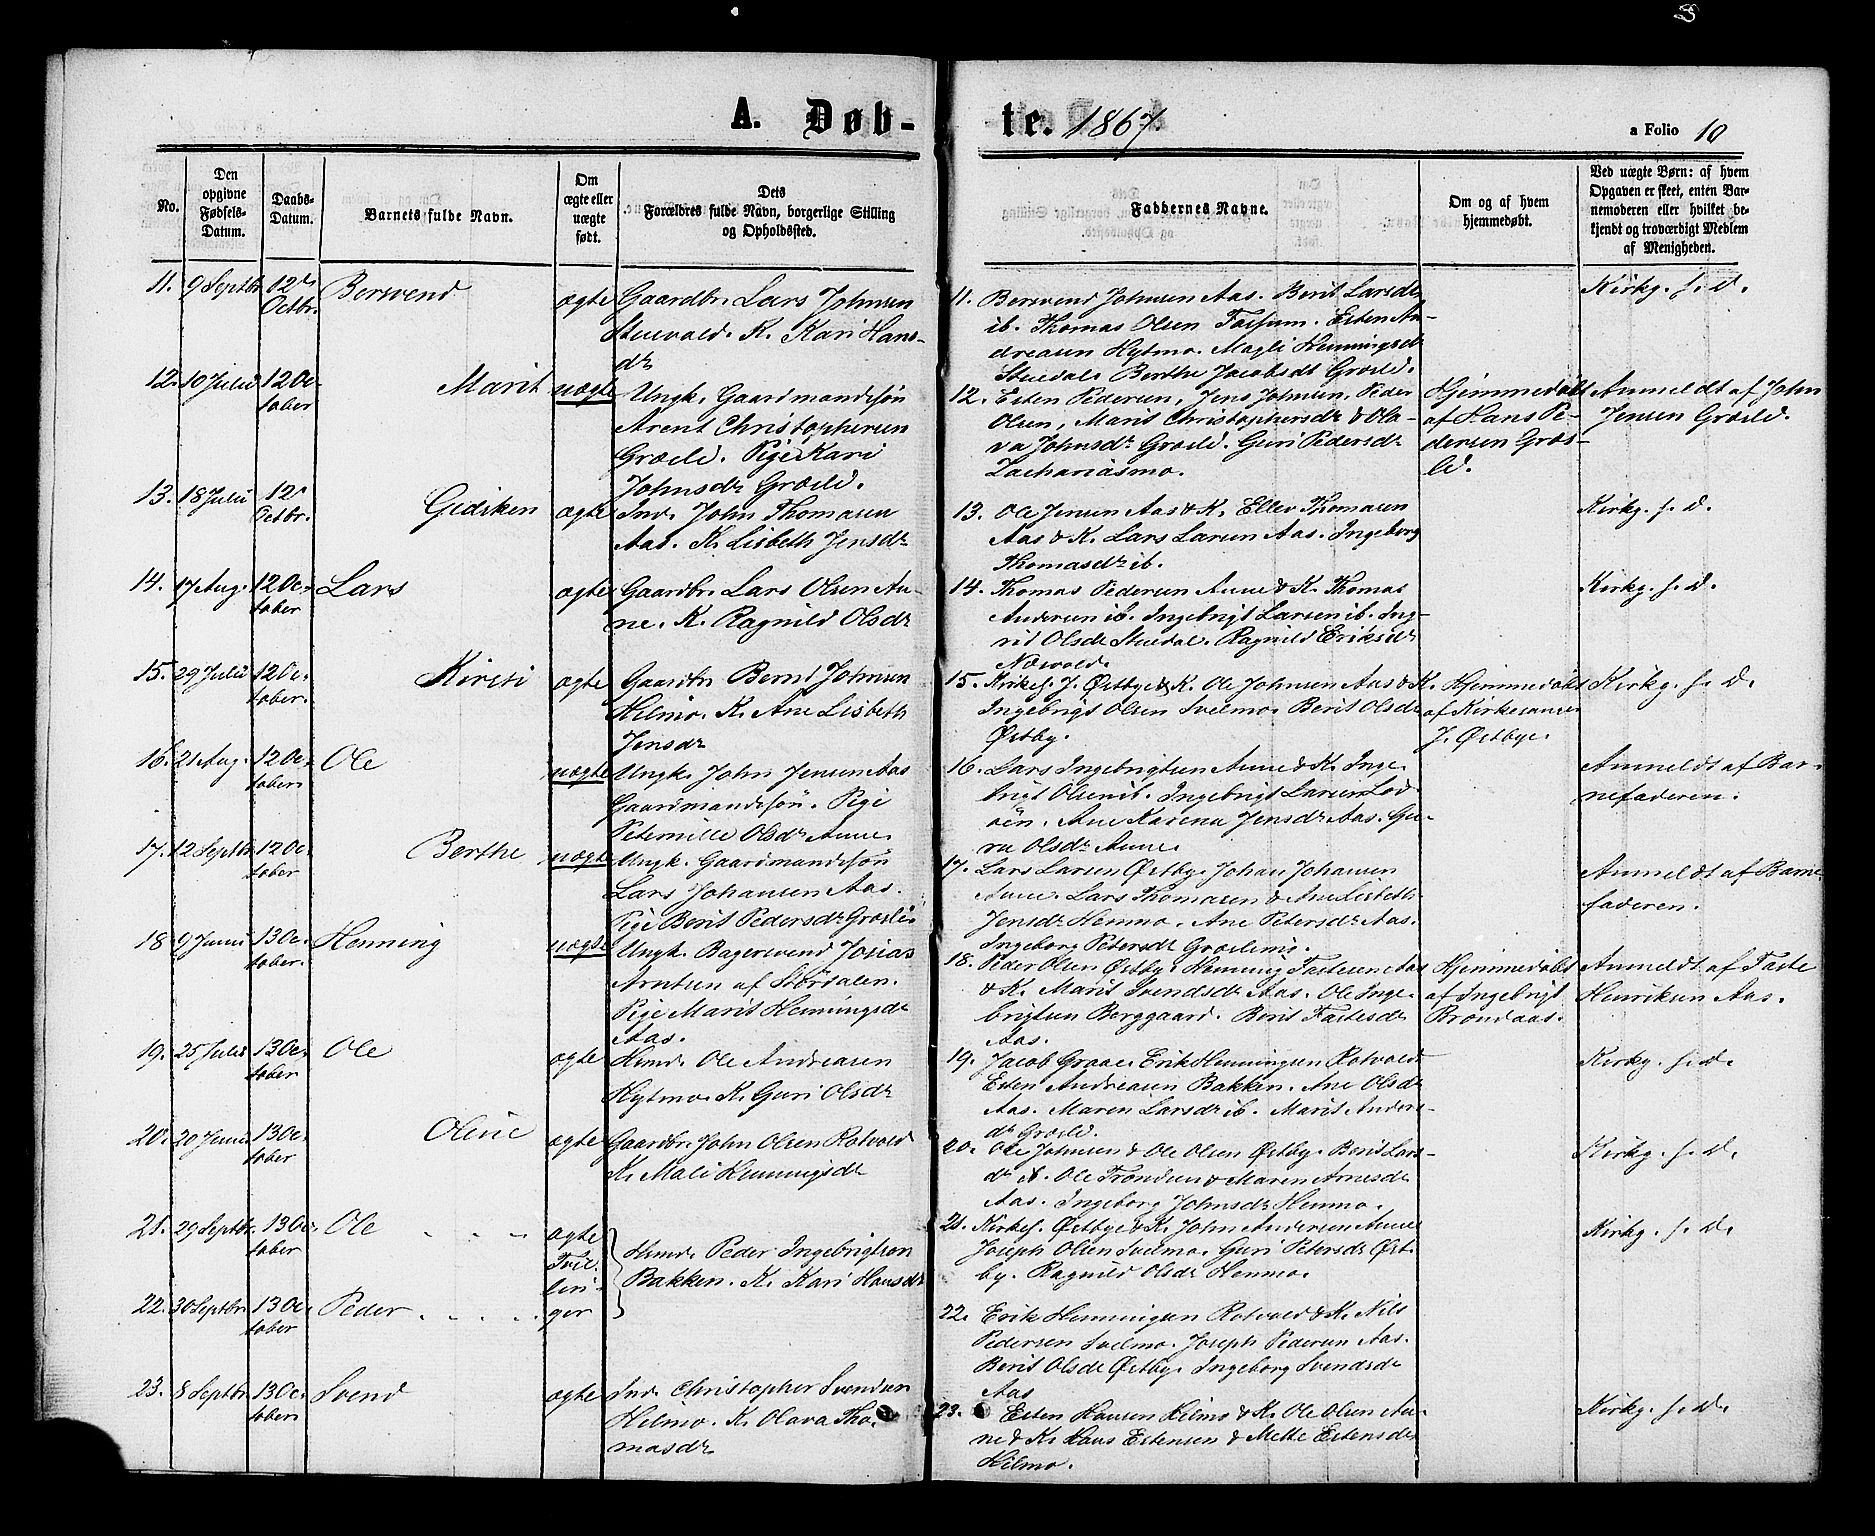 A. Døb-
te. 1867.
a Folio 10
No.
Den
opgivne
Fødsels-
Datum.
Daabs-
Datum.
Barnets fulde Navn.
Om
ægte eller
uægte
født.
Dets
Forældres fulde Navn, borgerlige Stilling
og Opholdssted.
Faddernes Navne.
Om og af hvem
hjemmedøbt.
Ved uægte Børn: af hvem
Opgaven er skeet, enten Bar-
nemoderen eller hvilket be-
kjendt og troværdigt Medlem
af Menigheden.
11. 9 Septbr. Bersvend ægte Gaardbr. Lars Johnsen
Octbr. Stuevold. K. Kari Hans-
dr
11. Bersvend Johnsen Aas. Berit Larsdr
ib. Thomas Olsen Faksum. Esten An-
dreasen Hytmo. Magli Henningsdr
Stuedal. Berthe Jacobsdr Græsli.
Kirkg. f. d.
12. 10 Juli 12 Oc- Marit uægte Ungk. Gaardmandssøn
tober Arent Christophersen
Græsli. Pige Kari
Johnsdr Græsli.
12. Esten Pedersen, Jens Johnsen, Peder
Olsen, Marit Christophersdr & Ola-
va Johnsdr Græsli. Guri Pedersdr
Zachariasmo.
Hjemmedøbt
af Hans Pe-
dersen Græs-
li.
Anmeldt af John
Jensen Græsli.
13. 18 Juli 12 Gidsken ægte Ind. John Thomasen
Octbr. Aas. K. Lisbeth Jensdr
13. Ole Jensen Aas & K. Ellev Thomasen
Aas & K. Lars Larsen Aas. Ingeborg
Thomasdr ib.
Kirkg. f. d.
14. 17 Aug. 12 Oc- Lars ægte Gaardbr. Lars Olsen Au-
tober ne. K. Ragnild Olsdr
14. Thomas Pedersen Aune & K. Thomas
Andersen ib. Ingebrigt Larsen ib. Ing-
rid Olsdr Stuedal. Ragnild Eriksdr
Næsvold.
Kirkg. f. d.
15. 29 Juli 12 Oc- Kirsti ægte Gaardbr. Bernt Johnsen
tober. Hilmo. K. Ane Lisbeth
Jensdr
15. Kirkes. J. Østbye & K. Ole Johnsen Aas & K.
Ingebrigt Olsen Svelmo. Berit Olsdr
Østby.
Hjemmedøbt
af Kirkesanger
J. Østbye.
Kirkg. f. d.
16. 21 Aug. 12 Oc- Ole uægte Ungk. John Jensen Aas
tober Gaardmandssøn. Pige
Peternille Olsdr Aune
16. Lars Ingebrigtsen Aune & K. Inge-
brigt Olsen ib. Ingebrigt Larsen Lod-
øen. Ane Karena Jensdr Aas. Gu-
ru Olsdr Aune
Anmeldt af Bar-
nefaderen.
17. 12 Septbr 12 Oc- Berthe uægte Ungk. Gaardmandssøn
tober Lars Johansen Aas.
Pige Berit Pedersdr Græsli.
17. Lars Larsen Østby. Johan Johansen
Aune. Lars Thomasen & Ane Lisbeth
Jensdr Henmo. Ane Petersdr Aas.
Ingeborg Petersdr Græslimo.
Anmeldt af Barne-
faderen.
18 9 Juni 13 Oc- Henning uægte Ungk. Bagersvend Josias
tober. Arntsen af Størdalen.
Pige Marit Henningsdr
Aas.
18. Peder Olsen Østby. Henning Fastesen Aas
& K. Marit Svendsdr Aas. Ole Inge-
brigtsen Berggaard. Berit Fastesdr
Aas.
Hjemmedøbt
af Ingebrigt
Brøndaas.
Anmeldt af Faste
Henriksen Aas.
19. 25 Juli 13 Oc- Ole ægte Husmd. Ole Andreasen
tober Hytmo. K. Guri Olsdr
19. Jacob Graae. Erik Henningsen Rotvold.
Esten Andreasen Bakken. Ane Olsdr
Aas. Maren Larsdr ib. Marit Anders-
dr Græsli.
Kirkg. f. d.
20. 20 Juni 13 Oc- Oline ægte Gaardbr. John Olsen Rotvold
tober K. Mali Henningsdr
20. Ole Johnsen & Ole Olsen Østby. Berit Lars-
dr ib. Ole Trondsen & Maren Arnesdr
Aas. Ingeborg Johnsdr Henmo.
Kirkg. f. d.
21. 29 Septbr. 13 Oc- Ole ægte
tober Tvil-
lin-
Husmd. Peder Ingebrigtsen
Bakken. K. Kari Hansdr
21. Kirkes. Østbye & K. John Andersen Aune
Joseph Olsen Svelmo. Guri Petersdr Øst-
by. Ragnild Olsdr Henmo.
Kirkg. f. d.
22. 30 Septbr. 13 Oc- Peder ger
tober
22. Erik Henningsen Rotvold & K. Nils
Pedersen Svelmo. Joseph Pedersen Aas.
Berit Olsdr Østby. Ingeborg Svendsdr
Aas
23. 8 Septbr. 13 Oc- Svend ægte Ind. Christopher Svendsen
tober Hilmo. K. Olava Tho-
masdr
23. Esten Hansen Hilmo & K. Ole Olsen Au-
ne & K. Hans Estensen & Mette Estensdr
Hilmo.
Kirkg. f. d.